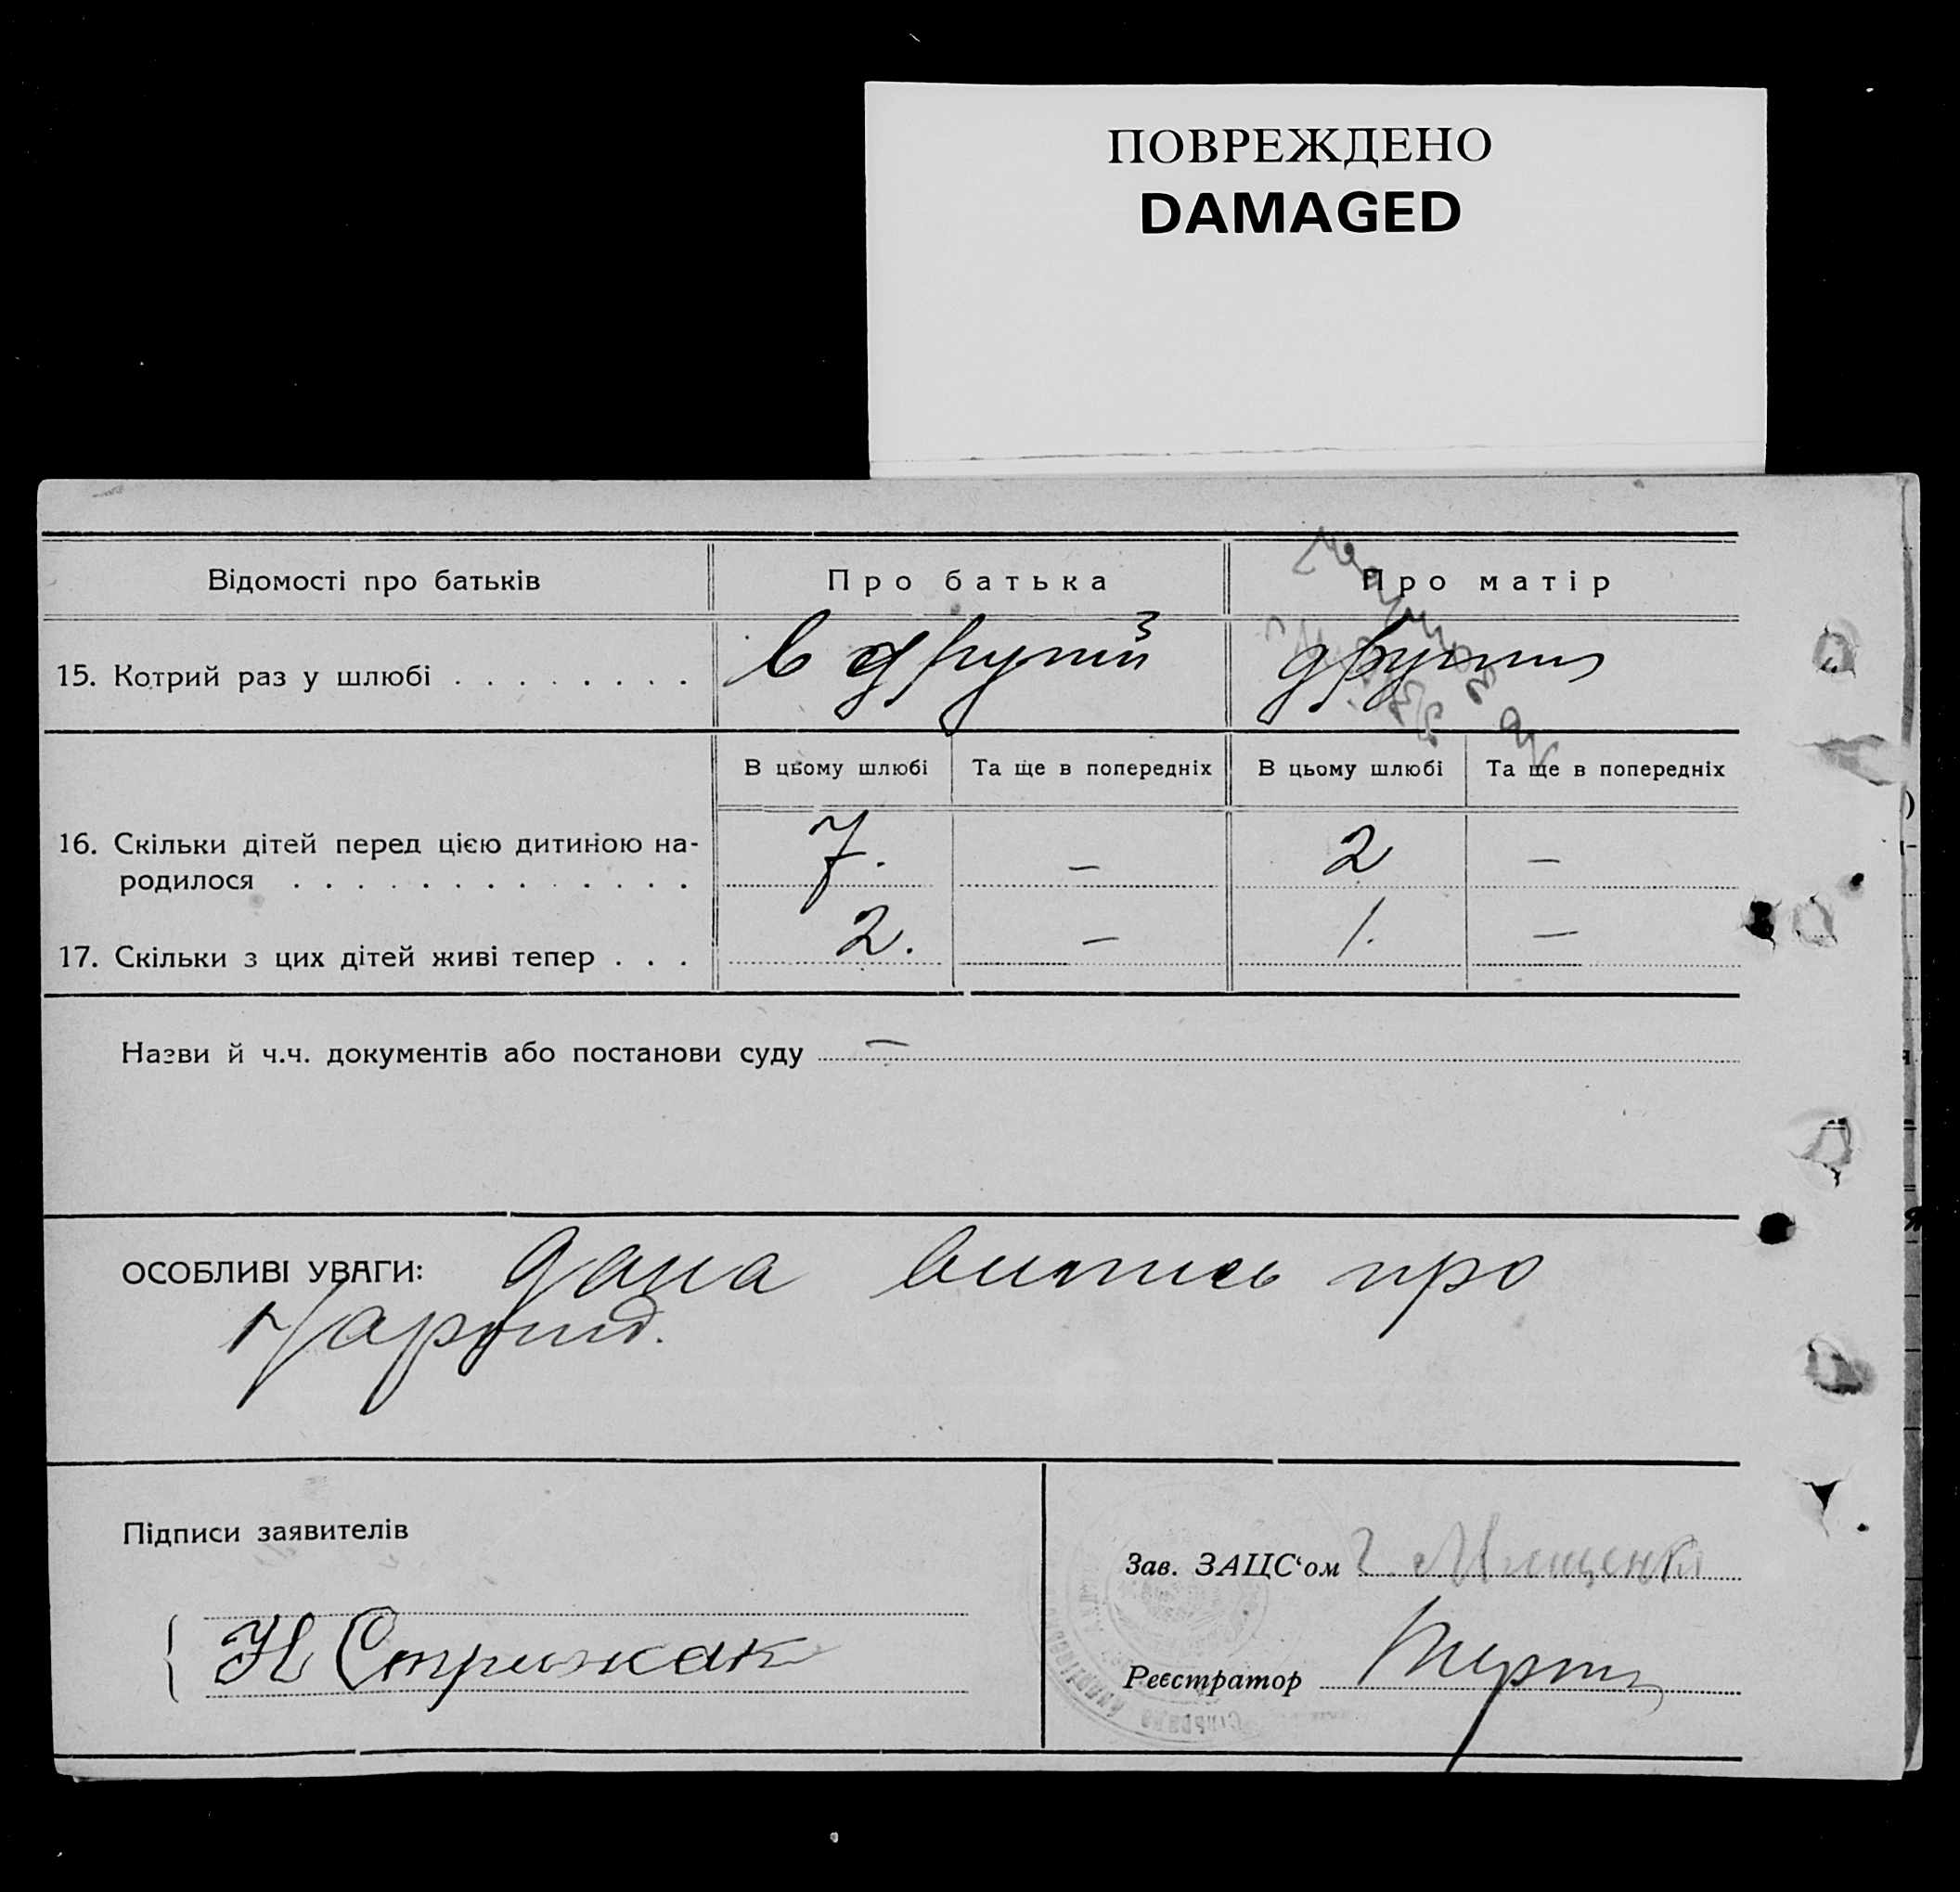 ПОВРЕЖДЕНО
DAMAGED
Відомості про батьків
Про батька
Про матір
15. Котрий раз у шлюбі . . . . . . . .
в другий
другий
В цьому шлюбі
Та ще в попередніх
В цьому шлюбі
Та ще в попередніх
16. Скільки дітей перед цією дитиною на-
родилося . . . . . . . . . . . . .
7. — 2 —
17. Скільки з цих дітей живі тепер . . .
2. — 1. —
Назви й ч.ч. документів або постанови суду —
ОСОБЛИВІ УВАГИ: дана випись про
народ.
Підписи заявителів
Н Стрижак
Зав. ЗАЦС‘ом Г. Мищенко
Реєстратор